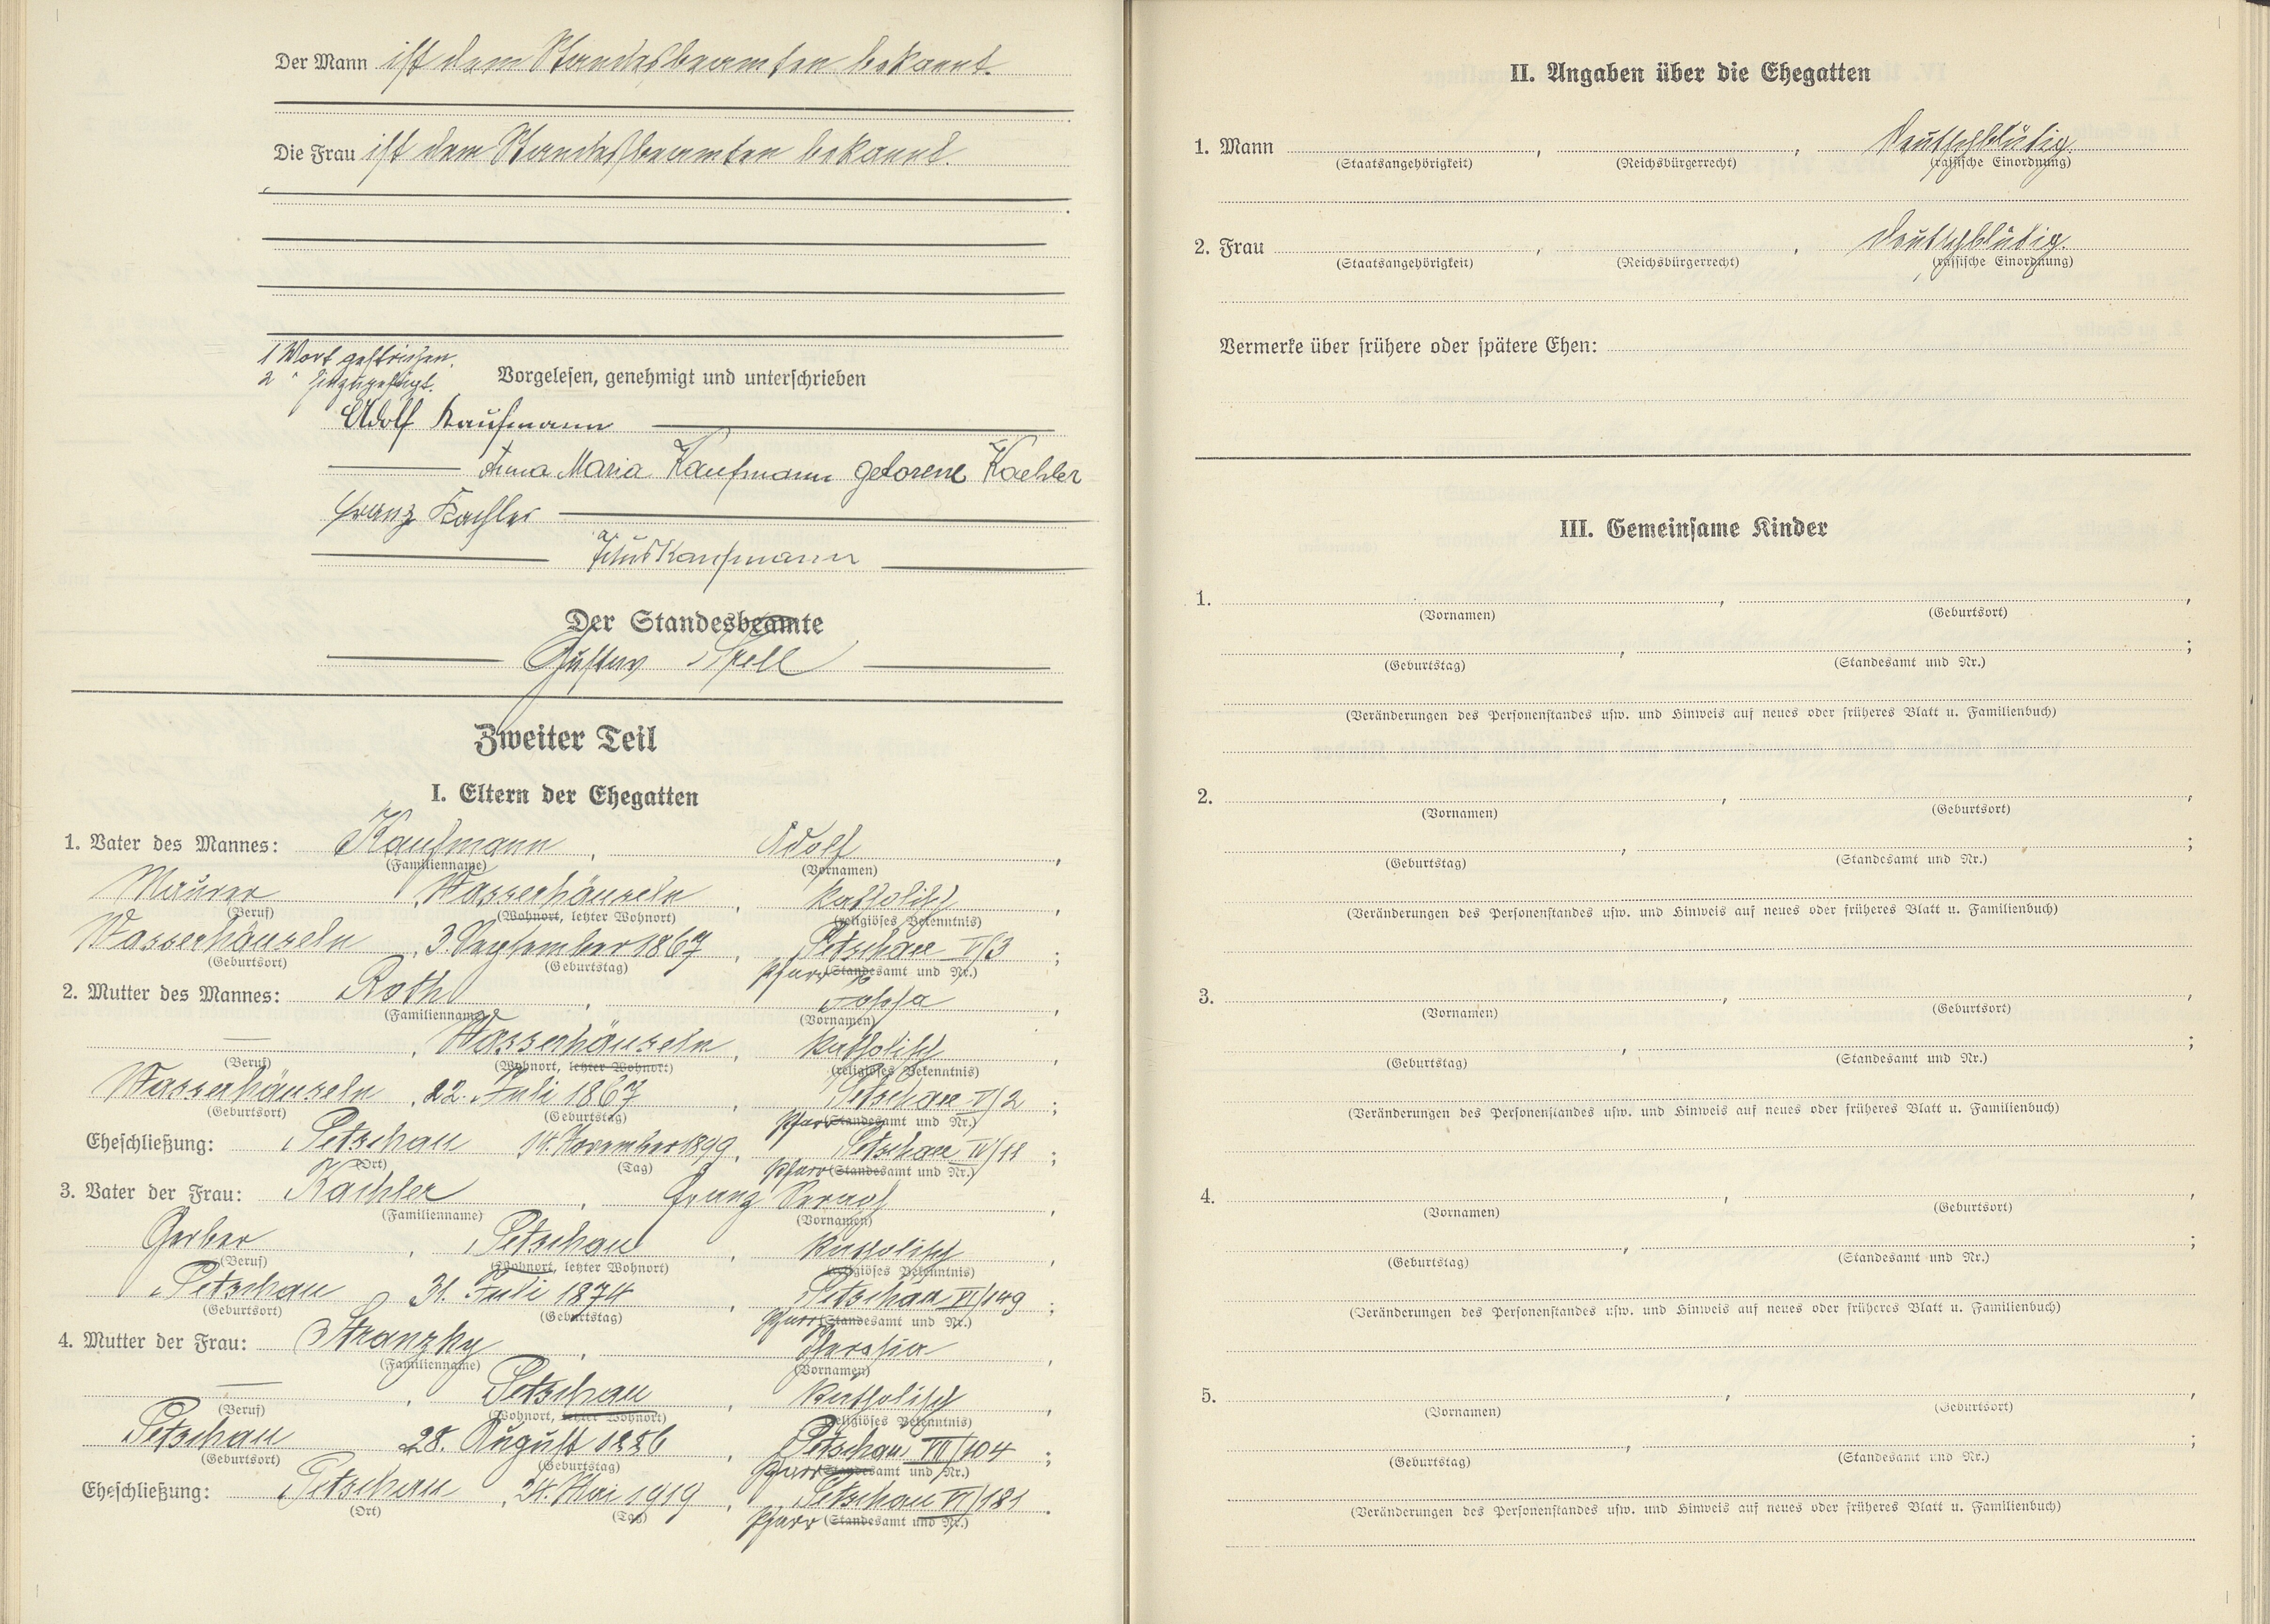 Der Mann ist dem Standesbeamten bekannt.
Die Frau ist dem Standesbeamten bekannt.
1 Wort gestrichen.
2 " hinzugefügt.
Vorgelesen, genehmigt und unterschrieben
Adolf Kaufmann
Anna Maria Kaufmann geborene Kaehler
Franz Kaehler
Kaufmann
Der Standesbeamte
Gustav
Zweiter Teil
I. Eltern der Ehegatten
1. Vater des Mannes: Kaufmann, Adolf,
(Familienname) (Vornamen)
Maurer, Wasserhäuseln, katholisch,
(Beruf) (Wohnort, letzter Wohnort) (religiöses Bekenntnis)
Wasserhäuseln, 3. September 1867, Petschau V/3;
(Geburtsort) (Geburtstag) Pfarr (Standesamt und Nr.)
2. Mutter des Mannes: Roth,
(Familienname) (Vornamen)
—, Wasserhäuseln, katholisch,
(Beruf) (Wohnort, letzter Wohnort) (religiöses Bekenntnis)
Wasserhäuseln, 22. Juli 1867, Petschau V/2;
(Geburtsort) (Geburtstag) Pfarr (Standesamt und Nr.)
Eheschließung: Petschau 14. November 1899, Petschau IV/11;
(Ort) (Tag) Pfarr (Standesamt und Nr.)
3. Vater der Frau: Kaehler, Franz Seraph,
(Familienname) (Vornamen)
Gerber, Petschau, katholisch,
(Beruf) (Wohnort, letzter Wohnort) (religiöses Bekenntnis)
Petschau 31. Juli 1874, Petschau VI/149;
(Geburtsort) (Geburtstag) Pfarr (Standesamt und Nr.)
4. Mutter der Frau: Stranzky, Theresia,
(Familienname) (Vornamen)
—, Petschau, katholisch,
(Beruf) (Wohnort, letzter Wohnort) (religiöses Bekenntnis)
Petschau 28. August 1886, Petschau VII/104;
(Geburtsort) (Geburtstag) Pfarr (Standesamt und Nr.)
Eheschließung: Petschau, 24. Mai 1919, Petschau VI/181.
(Ort) (Tag) Pfarr (Standesamt und Nr.)
II. Angaben über die Ehegatten
1. Mann , , Deutschblütig.
(Staatsangehörigkeit) (Reichsbürgerrecht) (rassische Einordnung)
2. Frau , , Deutschblütig.
(Staatsangehörigkeit) (Reichsbürgerrecht) (rassische Einordnung)
Vermerke über frühere oder spätere Ehen:
III. Gemeinsame Kinder
1. , ,
(Vornamen) (Geburtsort)
, ;
(Geburtstag) (Standesamt und Nr.)
(Veränderungen des Personenstandes usw. und Hinweis auf neues oder früheres Blatt u. Familienbuch)
2. , ,
(Vornamen) (Geburtsort)
, ;
(Geburtstag) (Standesamt und Nr.)
(Veränderungen des Personenstandes usw. und Hinweis auf neues oder früheres Blatt u. Familienbuch)
3. , ,
(Vornamen) (Geburtsort)
, ;
(Geburtstag) (Standesamt und Nr.)
(Veränderungen des Personenstandes usw. und Hinweis auf neues oder früheres Blatt u. Familienbuch)
4. , ,
(Vornamen) (Geburtsort)
, ;
(Geburtstag) (Standesamt und Nr.)
(Veränderungen des Personenstandes usw. und Hinweis auf neues oder früheres Blatt u. Familienbuch)
5. , ,
(Vornamen) (Geburtsort)
, ;
(Geburtstag) (Standesamt und Nr.)
(Veränderungen des Personenstandes usw. und Hinweis auf neues oder früheres Blatt u. Familienbuch)